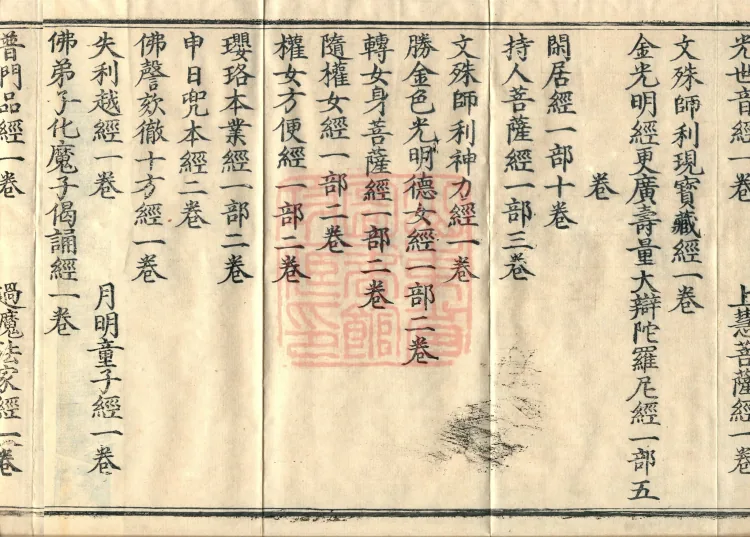 光世音經一卷 上慧菩薩經一卷
文殊師利現寶藏經一卷
金光明經更廣壽量大辯陀羅尼經一部五
卷
閑居經一部十卷
持人菩薩經一部三卷
文殊師利神力經一卷
勝金色光明德女經一部二卷
轉女身菩薩經一部二卷
隨權女經一部二卷
權女方便經一部二卷
瓔珞本業經一部二卷
申日兜本經二卷
佛謦欬徹十方經一卷
失利越經一卷 月明童子經一卷
佛弟子化魔子偈誦經一卷
普門品經一卷 過魔法家經一卷